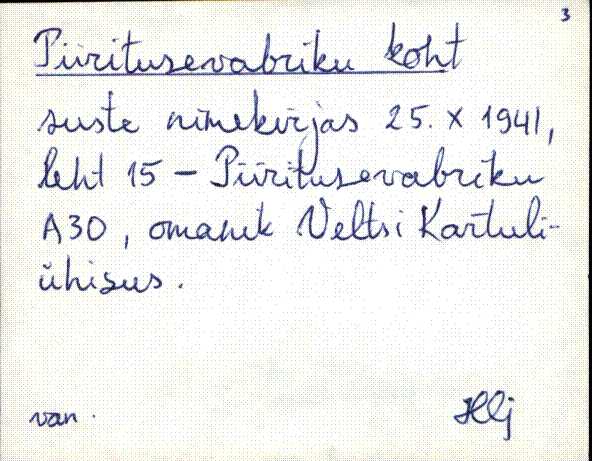 3
Piiritusevabriku koht
suste nimekirjas 25. X 1941,
leht 15 - Piiritusevabriku
A30, omanik Veltsi Kartuli-
ühisus.
van.